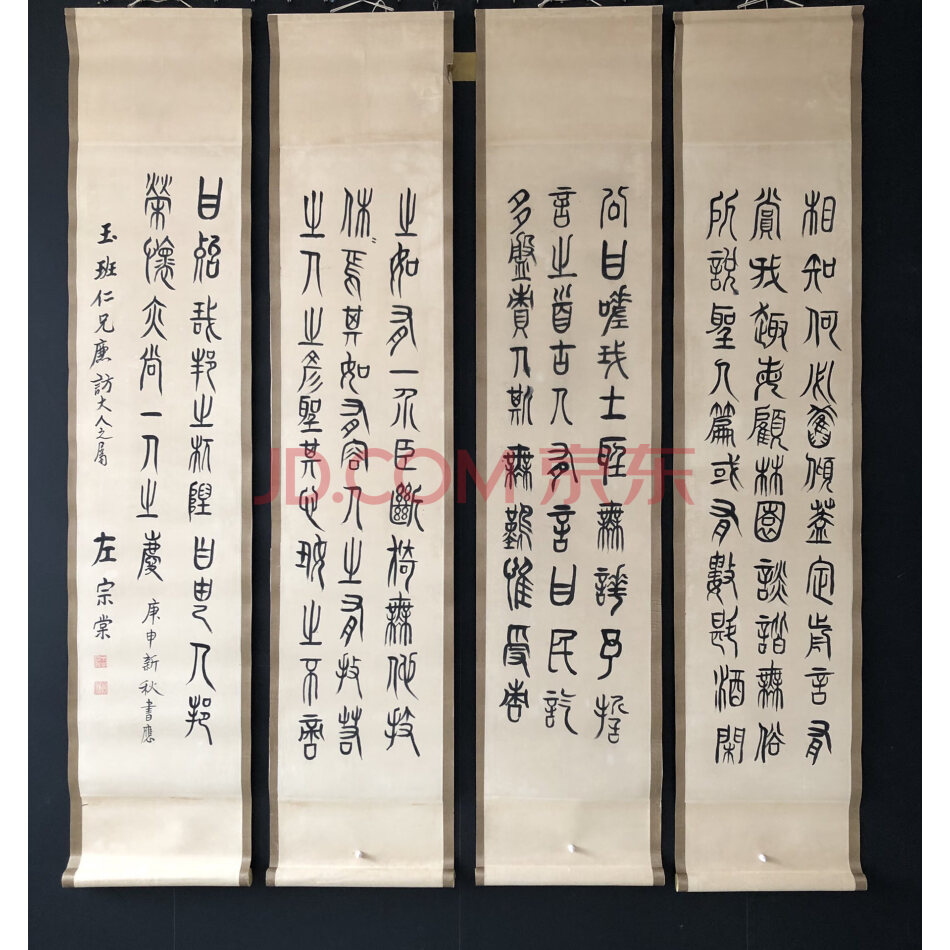 相知何必舊傾蓋定前言有
賞我趣每顧林園談諧無俗
所說聖人篇或有數斗酒閑
公曰嗟我士聽無譁予誓
言之首古人有言曰民訖
多盤責人斯無難惟受責
之如有一介臣斷猗無他技
休〻焉其如有容人之有技若
之人之彥聖其心好之不啻
曰殆哉邦之杌隉曰由人邦
榮懷亦尚一人之慶 庚申新秋書應
玉班仁兄廉訪大人之屬
左宗棠
JD.COM 京东